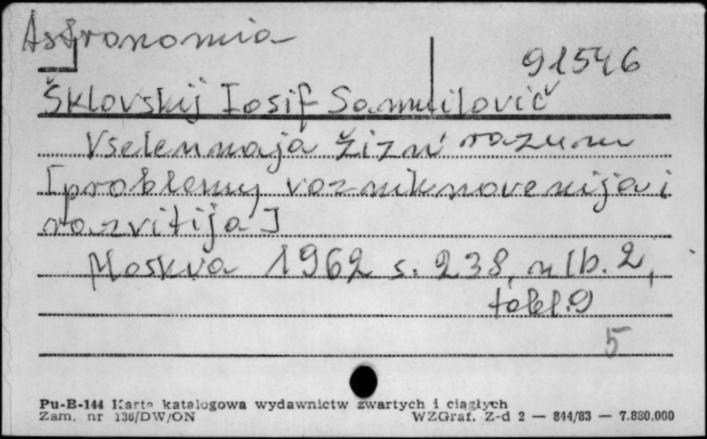 Astronomia
91546
Šklovskij Iosif Samuilovič
Vselennaja žizń razum
[problemy vozniknovenija i
razvitija]
Moskva 1962 s. 238, nlb. 2,
tabl. 9
5
Pu-B-144 Karta katalogowa wydawnictw zwartych i ciągłych
Zam. nr 136/DW/ON WZGraf. Z-d 2 — 844/83 — 7.880.000